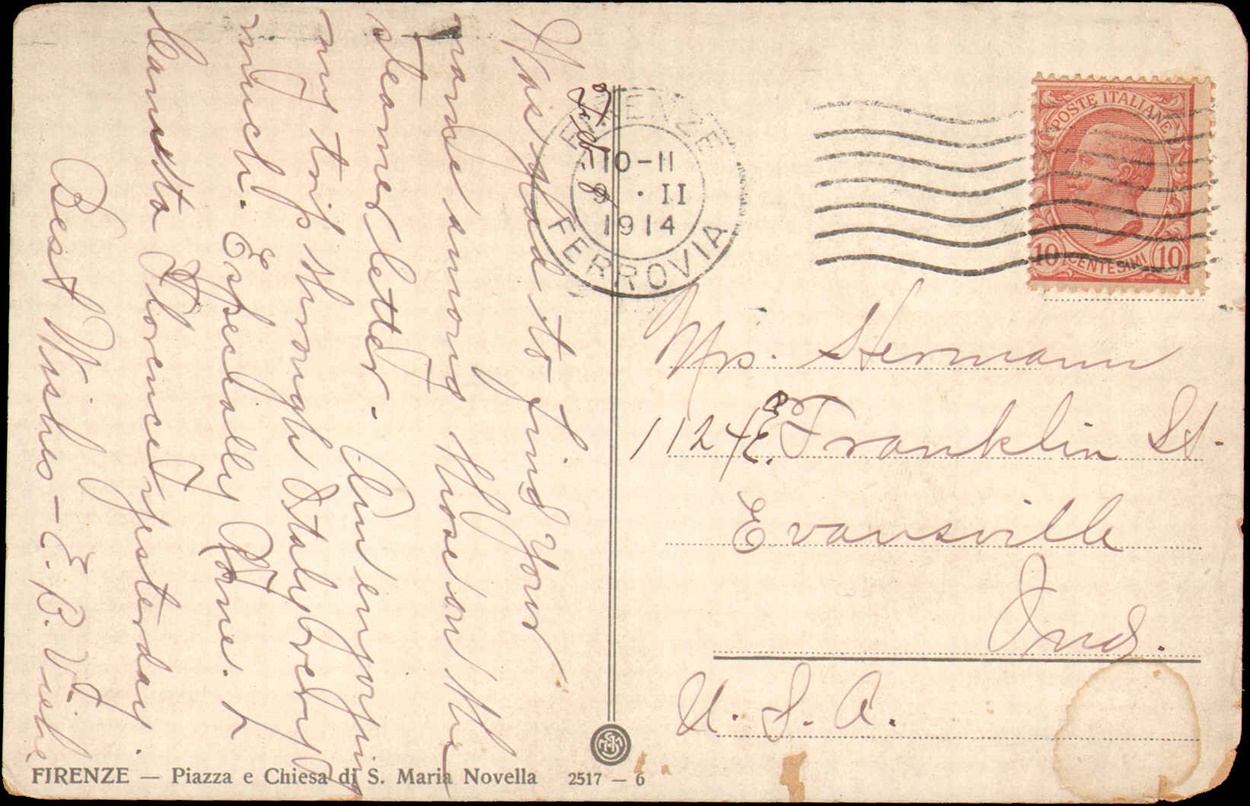 Feb. 8
Was glad to find your
name among those on the
steamer letter. Am enjoying
my trip through Italy very
much. Especially Rome. 
Came to Florence yesterday.
Best Wishes - E. B.
FIRENZE
10-11
9 · II
1914
FERROVIA
POSTE ITALIANE
10 CENTESIMI 10
Mrs. Hermann
1124 E. Franklin St.
Evansville
Ind.
U. S. A.
FIRENZE — Piazza e Chiesa di S. Maria Novella 2517 — 6